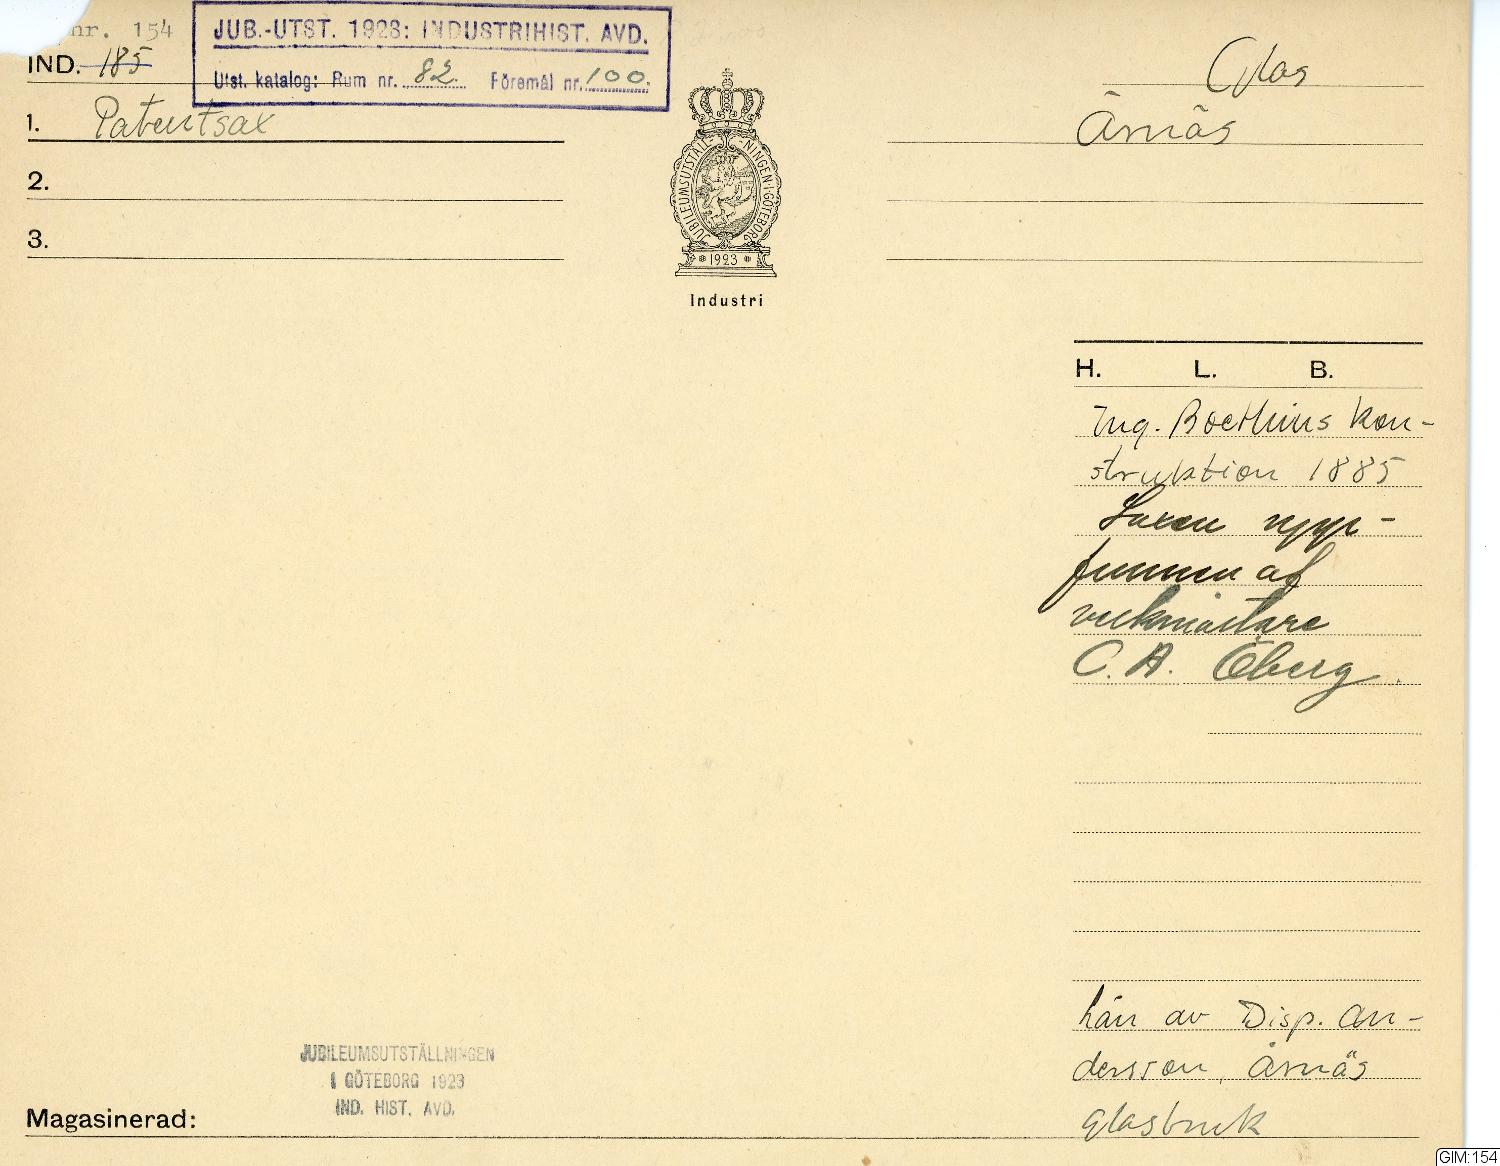 nr. 154
IND. 185
JUB.-UTST. 1923: INDUSTRIHIST. AVD.
Utst. katalog: Rum nr. 82. Föremål nr. 100.
Glas
1. Patentsax
Årnäs
2.
3.
JUBILEUMSUTSTÄLL-NINGEN·I·GÖTEBORG
1923
Industri
H. L. B.
Ing. Boethius kon-
struktion 1885
Saxen upp-
funnen af
verkmästare
C. A. Öberg.
Lån av Disp. An-
dersson, Årnäs
glasbruk
JUBILEUMSUTSTÄLLNINGEN
I GÖTEBORG 1923
IND. HIST. AVD.
Magasinerad:
GIM:154